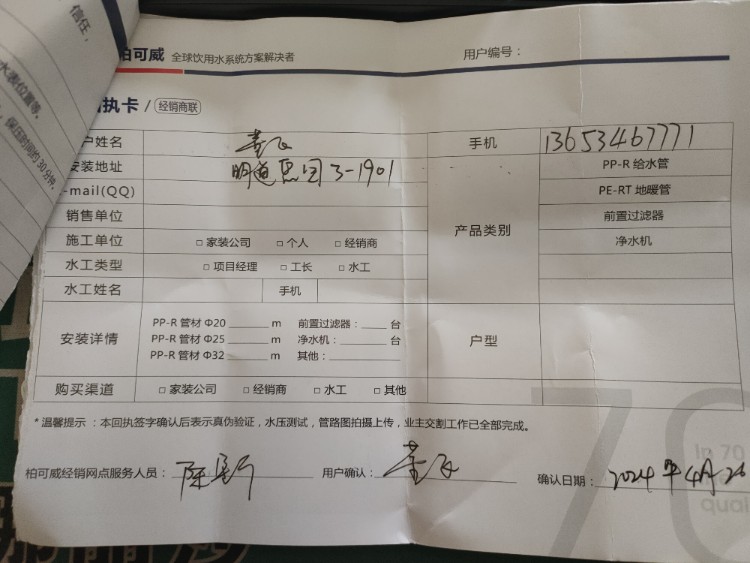 信任,
水表位置等。
保压时间约30分钟,
柏可威 全球饮用水系统方案解决者 用户编号:
执卡 / 经销商联
户姓名 手机 13653467771
安装地址 明道 3-1901 PP-R 给水管
-mail(QQ) PE-RT 地暖管
销售单位 产品类别 前置过滤器
施工单位 □ 家装公司 □ 个人 □ 经销商 净水机
水工类型 □ 项目经理 □ 工长 □ 水工
水工姓名 手机
安装详情 PP-R 管材 Φ20 ______ m 前置过滤器:____ 台 户型
PP-R 管材 Φ25 ______ m 净水机:______ 台
PP-R 管材 Φ32 ______ m 其他:______
购买渠道 □ 家装公司 □ 经销商 □ 水工 □ 其他
*温馨提示:本回执签字确认后表示真伪验证,水压测试,管路图拍摄上传,业主交割工作已全部完成。
70
In 70
柏可威经销网点服务人员: 陈 用户确认: 确认日期: 2024年4月26
qual